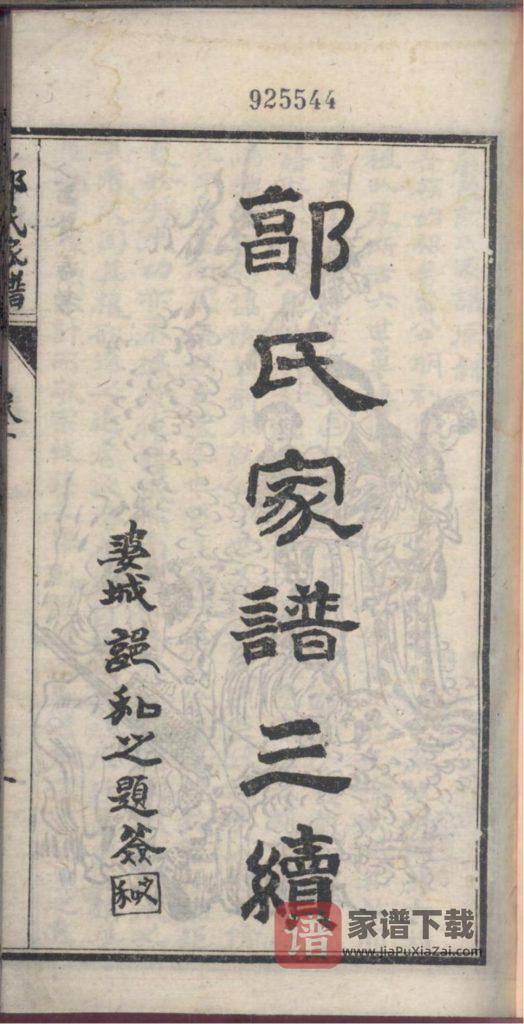 925544
郭氏家譜三續
婺城 和之題簽
郭氏家譜
家谱下载
www.JiaPuXiaZai.com
谱